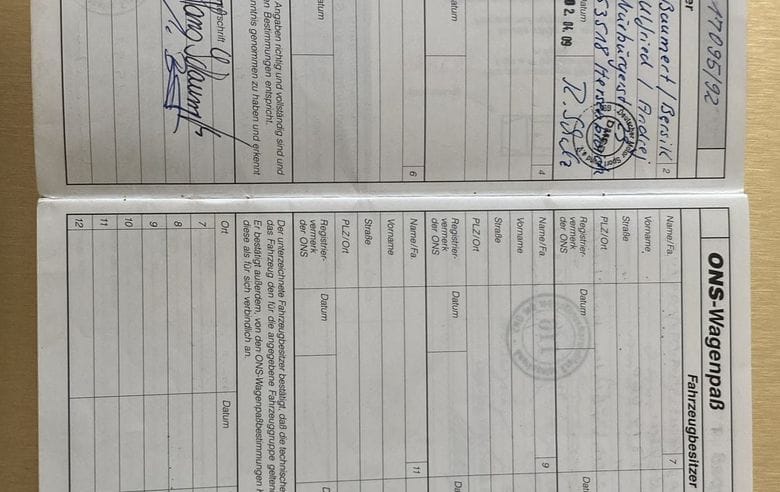 17095/92
er
2
Baumert / Bersik
Ulfried / Andrej
53518
Datum
02. 04. 09
R. Schulz
Deutscher Motor Sport
DMSB
4
atum
6
atum
Angaben richtig und vollständig sind und
en Bestimmungen entspricht.
nntnis genommen zu haben und erkennt
erschrift
ONS-Wagenpaß
Fahrzeugbesitzer
Name/Fa.
7
Vorname
Straße
PLZ/Ort
Registrier-
vermerk
der ONS
Datum
Name/Fa.
9
Vorname
Straße
PLZ/Ort
Registrier-
vermerk
der ONS
Datum
Name/Fa.
11
Vorname
Straße
PLZ/Ort
Registrier-
vermerk
der ONS
Datum
Der unterzeichnete Fahrzeugbesitzer bestätigt, daß die technische
das Fahrzeug den für die angegebene Fahrzeuggruppe geltend
Er bestätigt außerdem, von den ONS-Wagenpaßbestimmungen K
diese als für sich verbindlich an.
Ort
Datum
7
8
9
10
11
12